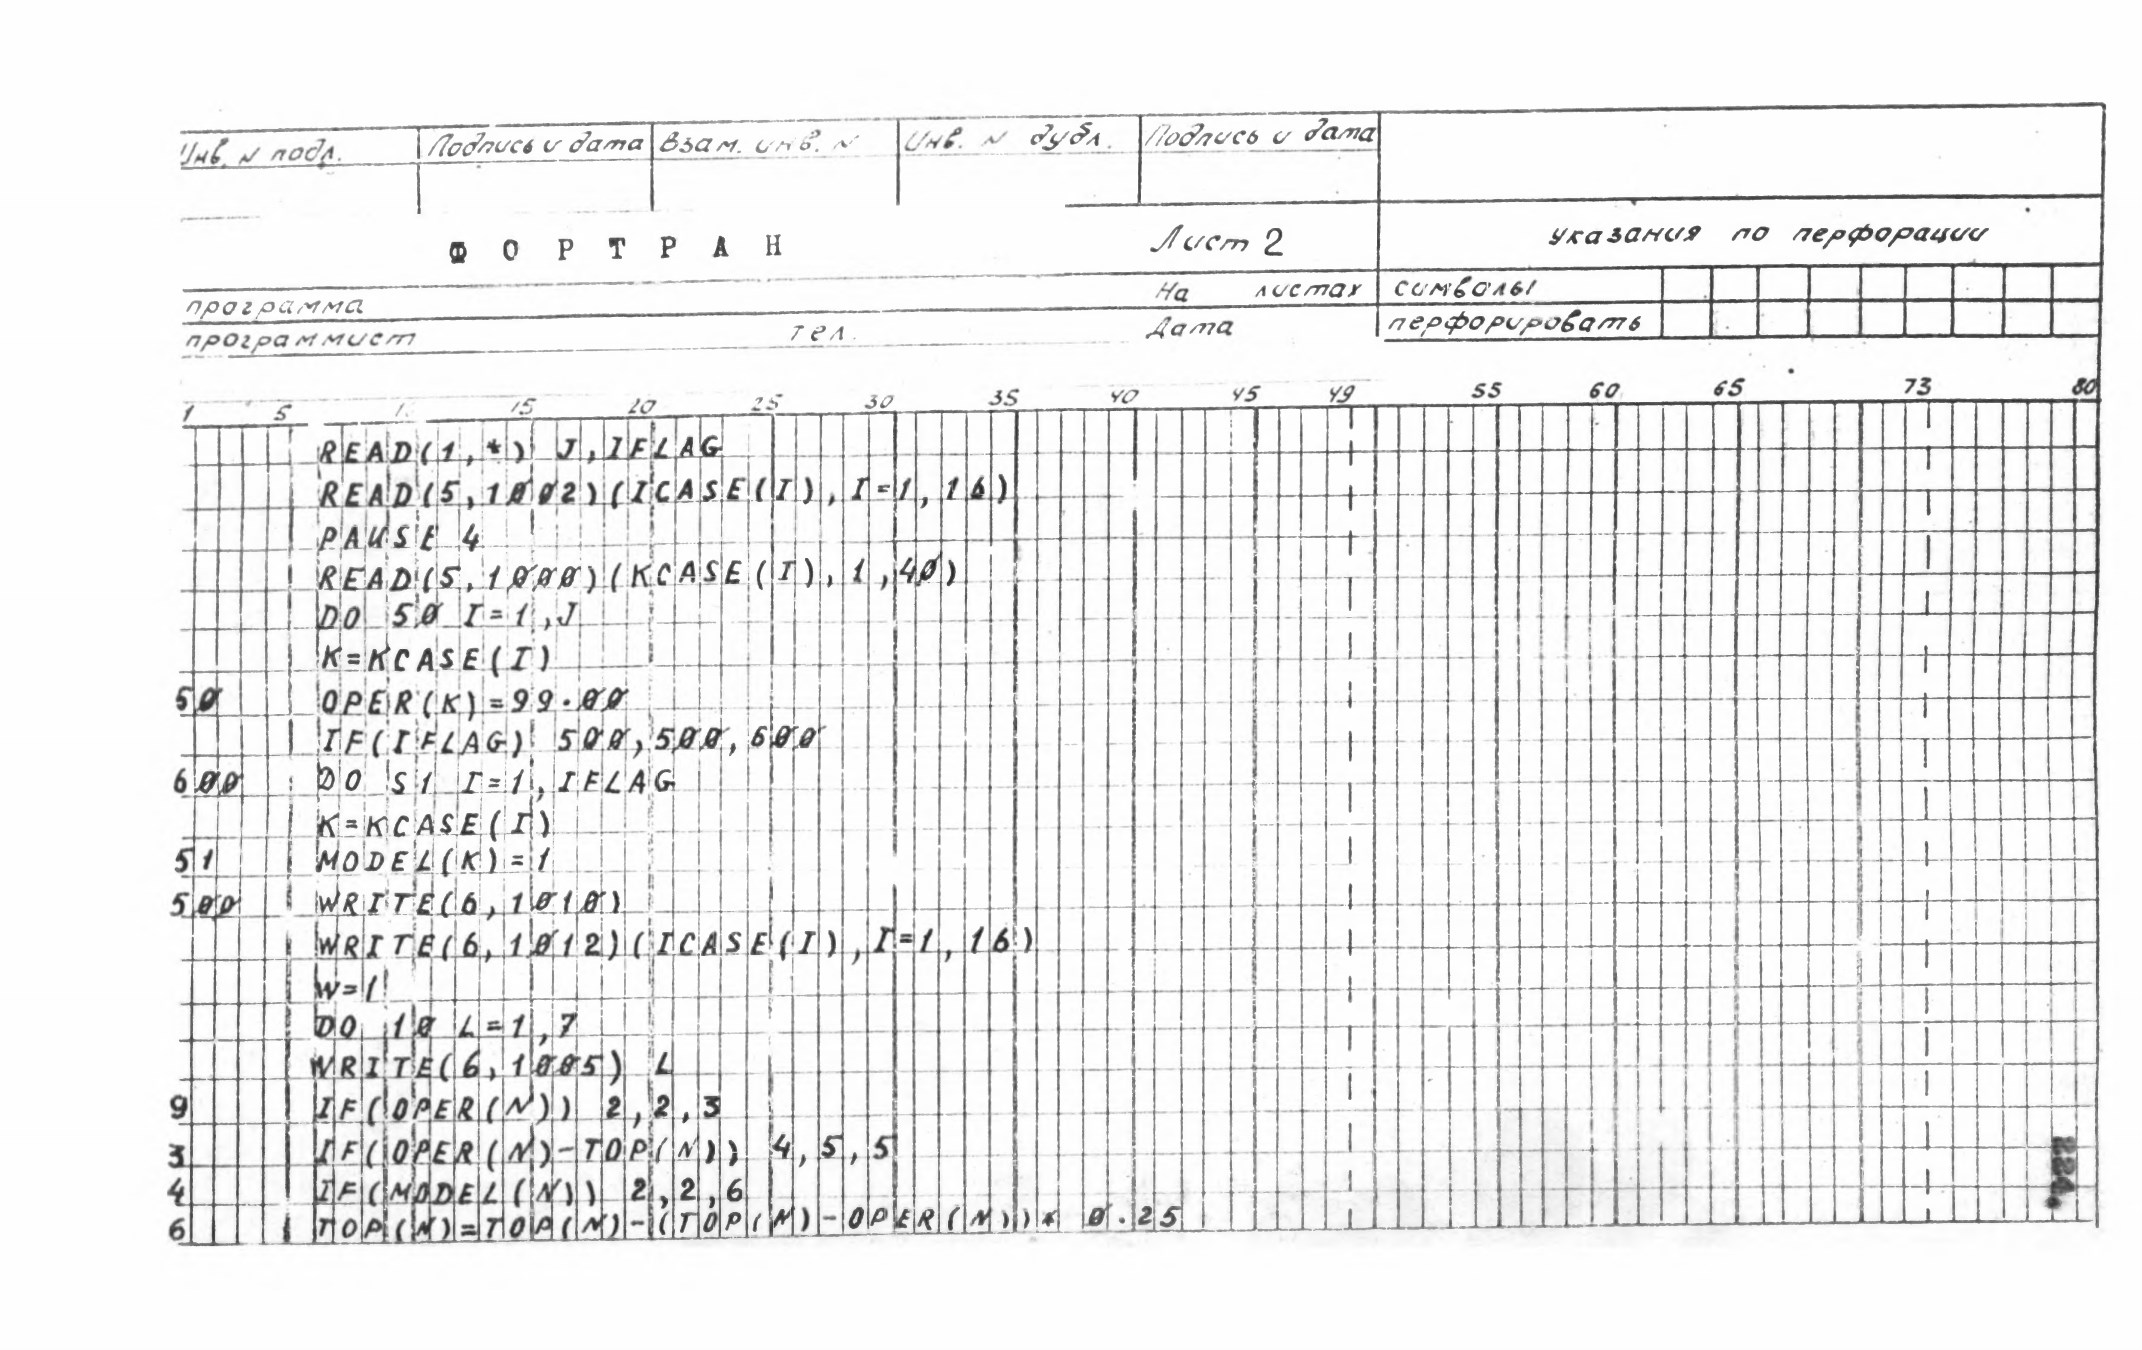 Инв. N подл. Подпись и дата Взам. инв. N Инв. N дубл. Подпись и дата
ФОРТРАН Лист 2 указания по перфорации
программа На листах символы
программист тел. Дата перфорировать
1 5 1. 15 20 25 30 35 40 45 49 55 60 65 73 80
READ(1,*) J,IFLAG
READ(5,1002)(ICASE(I),I=1,16)
PAUSE 4
READ(5,1000)(KCASE(I),1,40)
DO 50 I=1,J
K=KCASE(I)
50 OPER(K)=99.00
IF(IFLAG) 500,500,600
600 DO S1 I=1,IFLAG
K=KCASE(I)
51 MODEL(K)=1
500 WRITE(6,1010)
WRITE(6,1012)(ICASE(I),I=1,16)
W=1
DO 10 L=1,7
WRITE(6,1005) L
9 IF(OPER(N)) 2,2,3
3 IF(OPER(N)-TOP(N)) 4,5,5
4 IF(MODEL(N)) 2,2,6
6 TOP(N)=TOP(N)-(TOP(N)-OPER(N))* 0.25